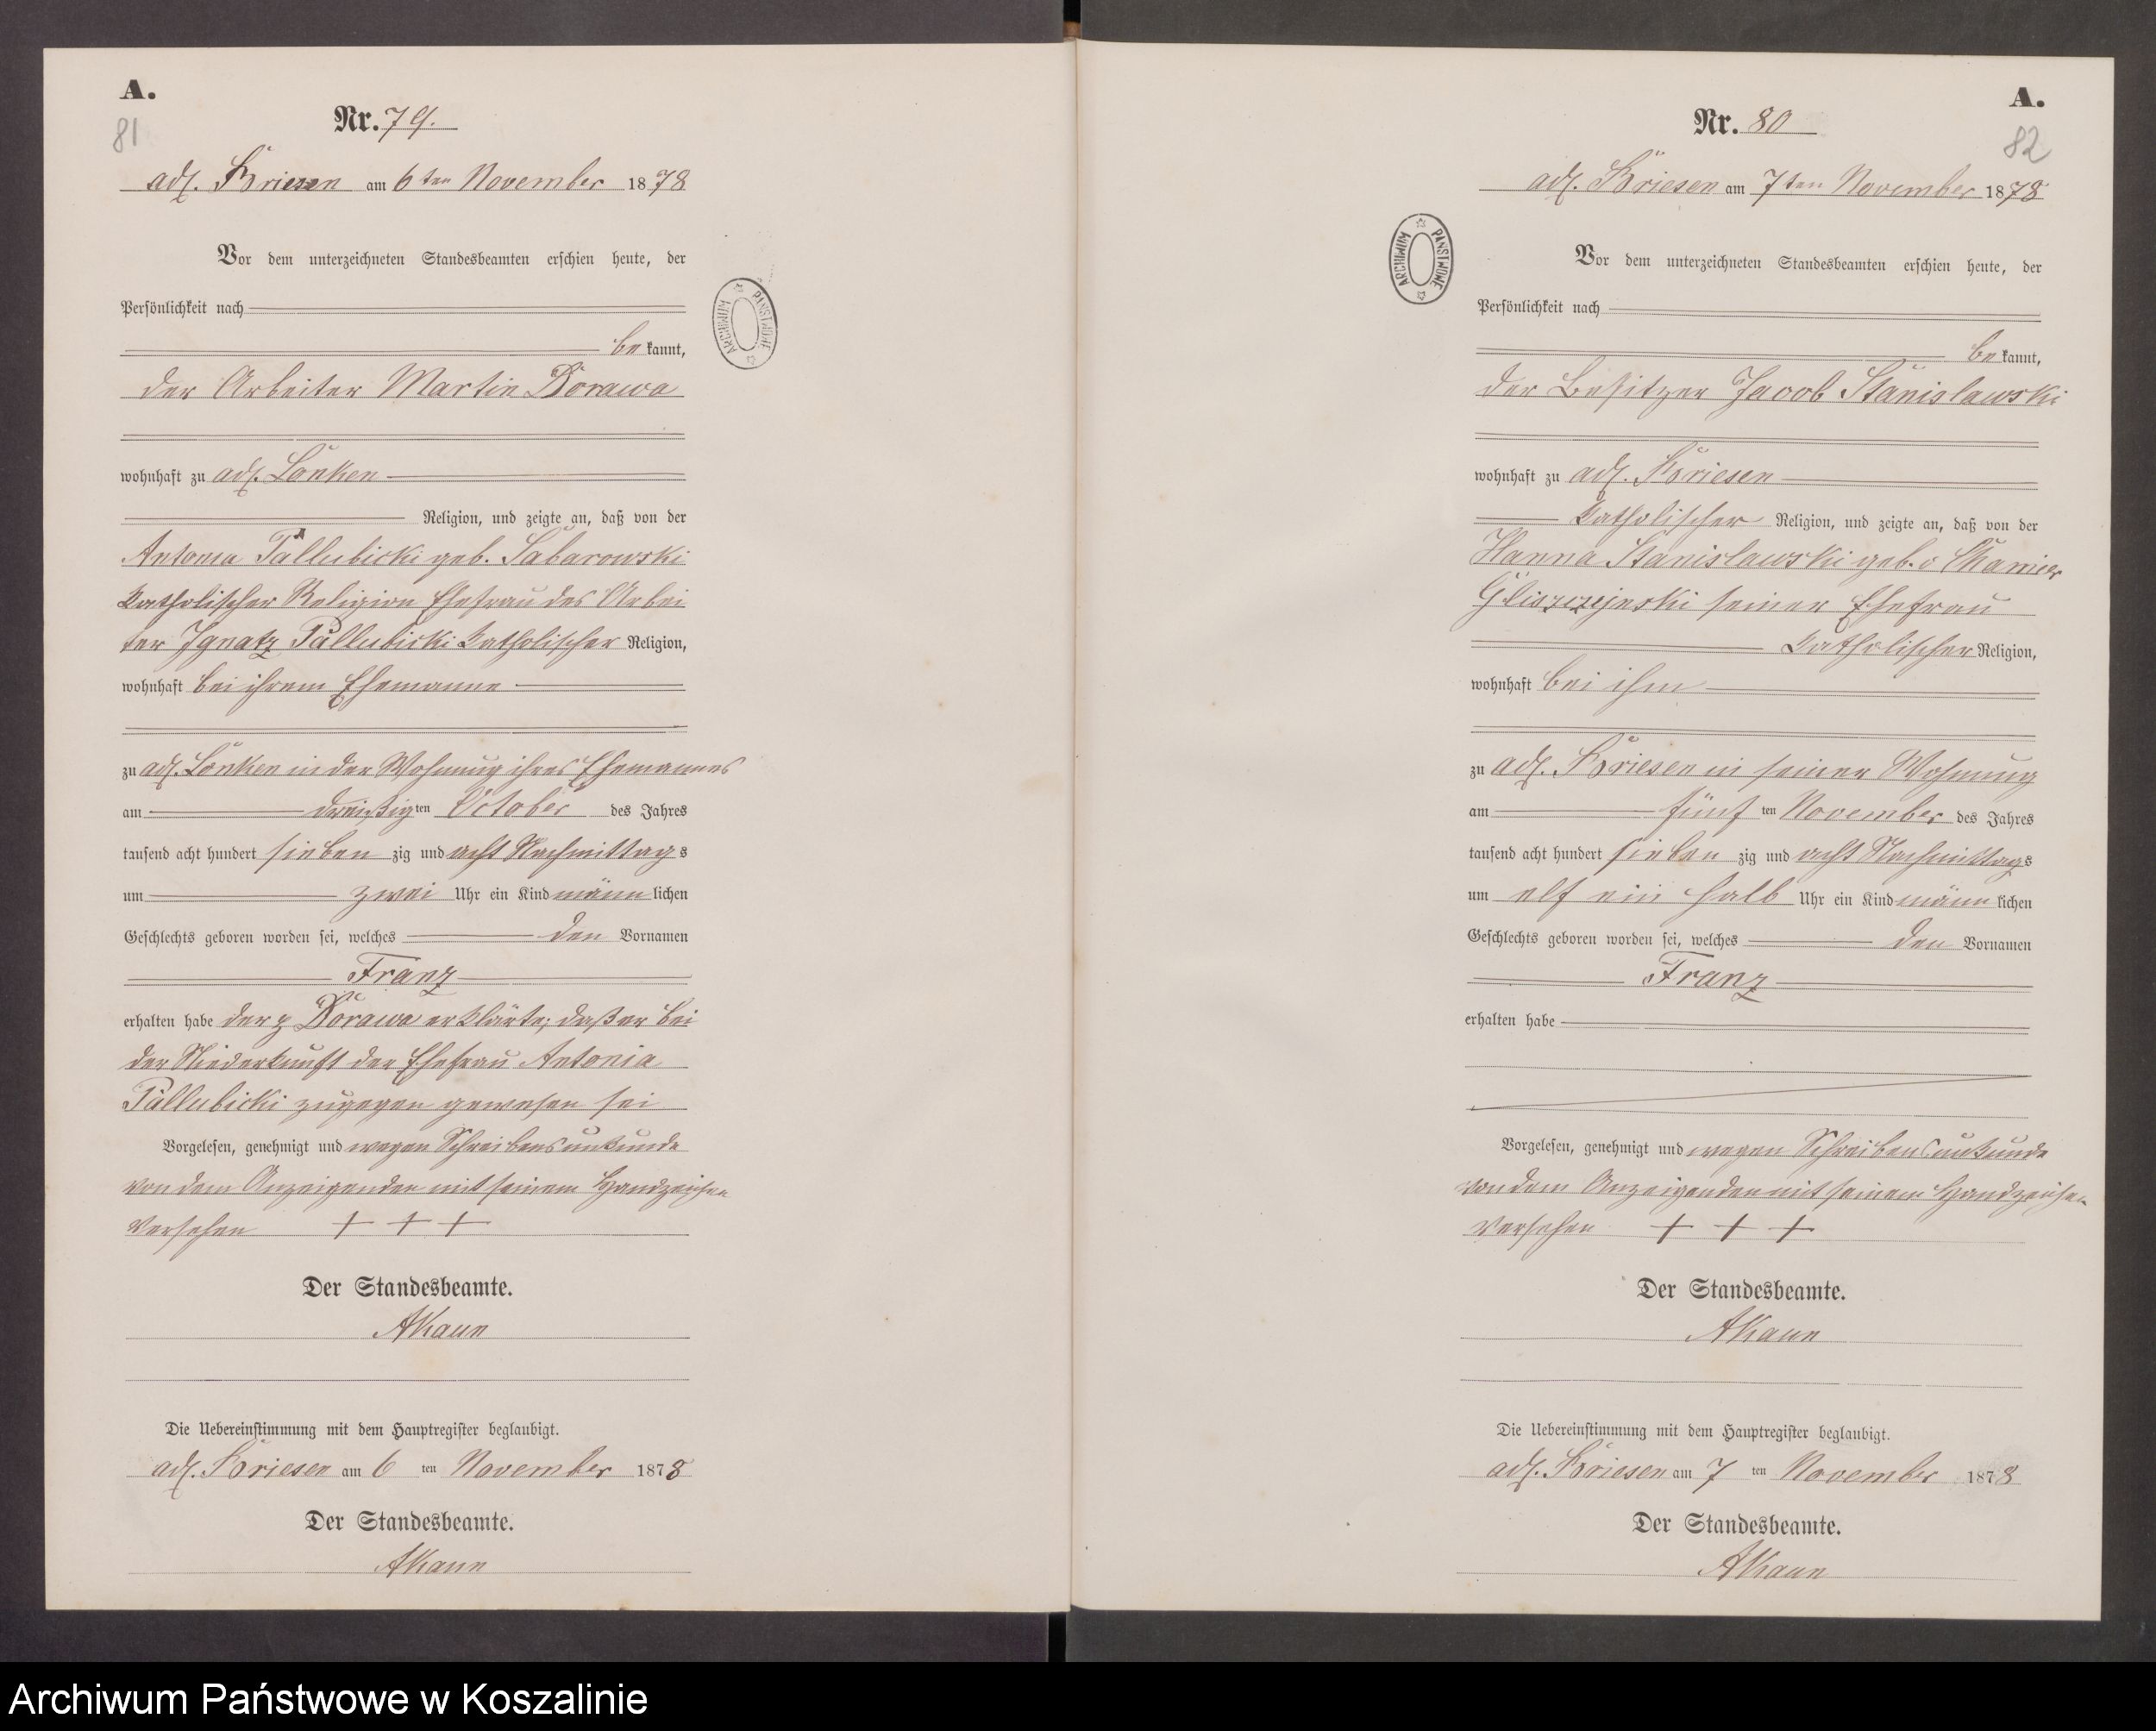 A.
81
Nr. 79.
adl. Briesen am 6ten November 1878
Vor dem unterzeichneten Standesbeamten erschien heute, der
Persönlichkeit nach
bekannt,
der Arbeiter Martin Dorawa
wohnhaft zu adl. Lonken
Religion, und zeigte an, daß von der
Antonia Pallubicki geb. Labarowski
Katholischer Religion Ehefrau des Arbei
ter Ignatz Pallubicki Katholischer Religion,
wohnhaft bei ihrem Ehemanne
zu adl. Lonken in der Wohnung ihres Ehemannes
am dreißigten October des Jahres
tausend acht hundert siebenzig und acht Nachmittags
um zwei Uhr ein Kind männlichen
Geschlechts geboren worden sei, welches den Vornamen
Franz
erhalten habe der Dorawa erklärte, daß er bei
der Niederkunft der Ehefrau Antonia
Pallubicki zugegen gewesen sei
Vorgelesen, genehmigt und wegen Schreibensunkunde
von dem Anzeigenden mit seinem Handzeichen
versehen + + +
Der Standesbeamte.
AKaun
Die Uebereinstimmung mit dem Hauptregister beglaubigt.
adl. Briesen am 6ten November 1878
Der Standesbeamte.
AKaun
ARCHIWUM PAŃSTWOWE
A.
82
Nr. 80
adl. Briesen am 7ten November 1878
ARCHIWUM PAŃSTWOWE
Vor dem unterzeichneten Standesbeamten erschien heute, der
Persönlichkeit nach
bekannt,
der Besitzer Jacob Stanislawski
wohnhaft zu adl. Briesen
Katholischer Religion, und zeigte an, daß von der
Hanna Stanislawski geb. v Chamier
seiner Ehefrau
Katholischer Religion,
wohnhaft bei ihm
zu adl. Briesen in seiner Wohnung
am fünften November des Jahres
tausend acht hundert siebenzig und acht Nachmittags
um elf ein halb Uhr ein Kind männlichen
Geschlechts geboren worden sei, welches den Vornamen
Franz
erhalten habe
Vorgelesen, genehmigt und wegen Schreibensunkunde
von dem Anzeigenden mit seinem Handzeichen
versehen + + +
Der Standesbeamte.
AKaun
Die Uebereinstimmung mit dem Hauptregister beglaubigt.
adl. Briesen am 7ten November 1878
Der Standesbeamte.
AKaun
Archiwum Państwowe w Koszalinie